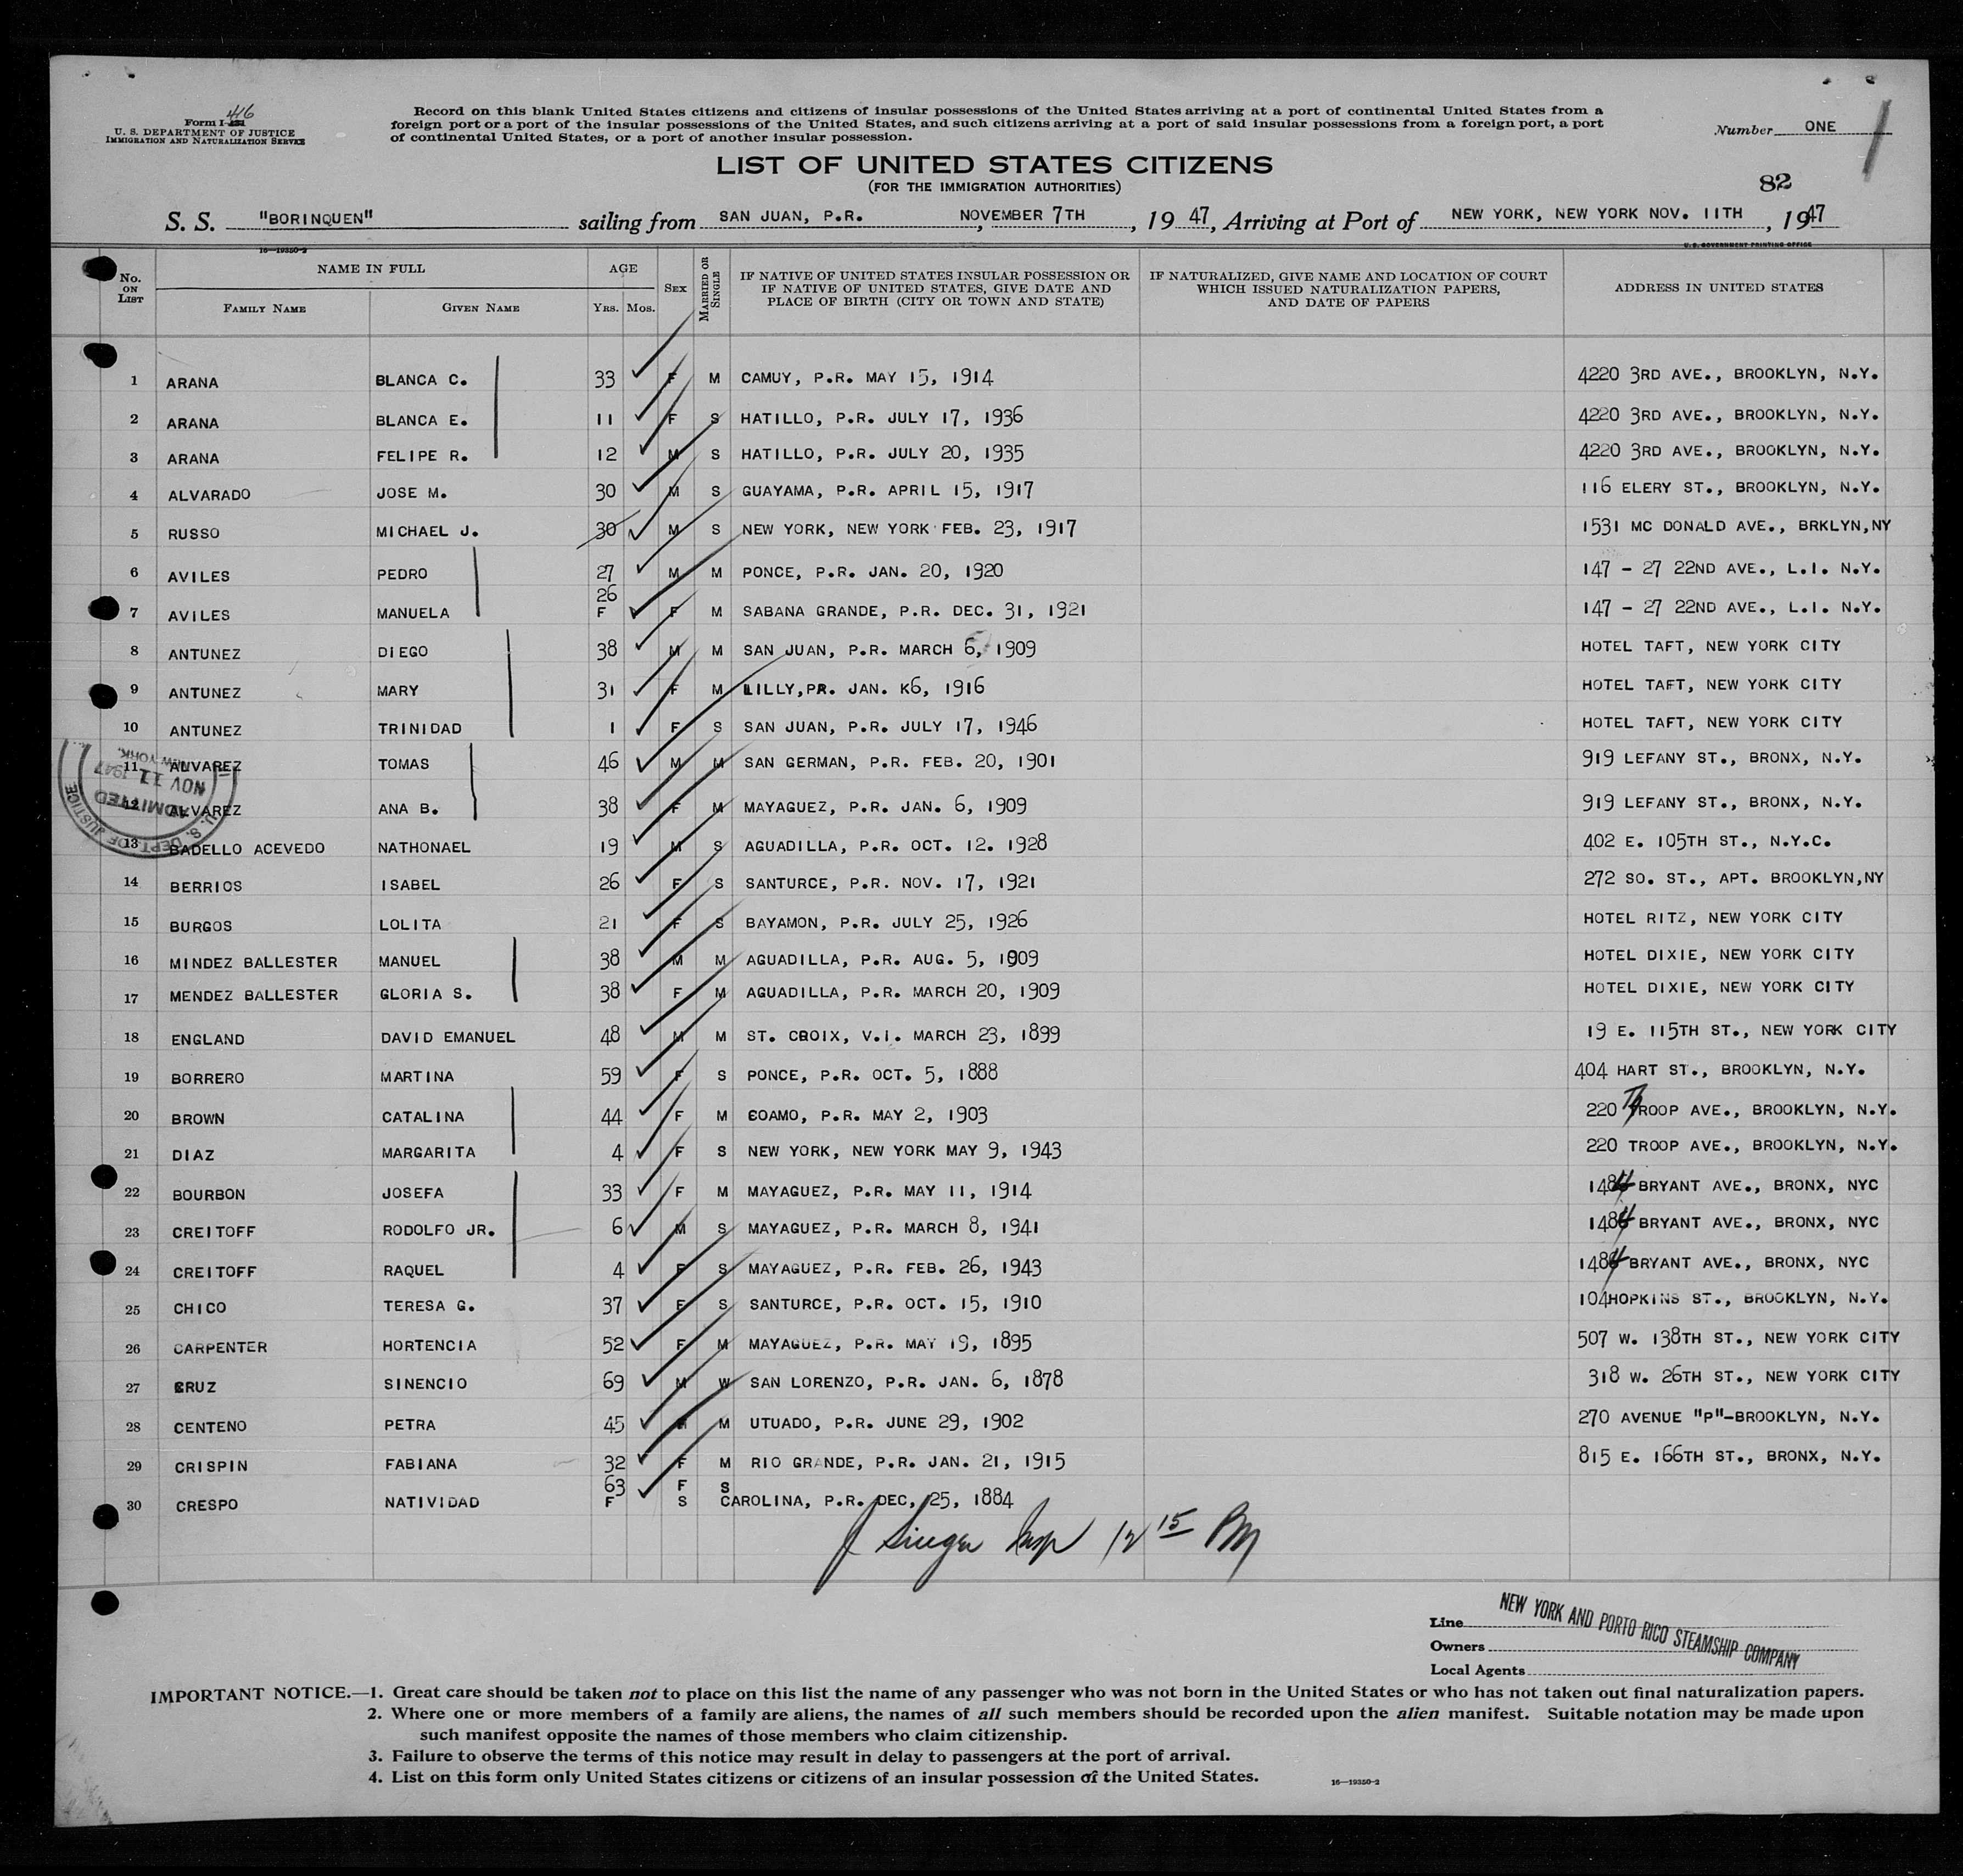 Form I-416
U. S. DEPARTMENT OF JUSTICE
IMMIGRATION AND NATURALIZATION SERVICE
Record on this blank United States citizens and citizens of insular possessions of the United States arriving at a port of continental United States from a
foreign port or a port of the insular possessions of the United States, and such citizens arriving at a port of said insular possessions from a foreign port, a port
of continental United States, or a port of another insular possession.
Number ONE 1
LIST OF UNITED STATES CITIZENS
(FOR THE IMMIGRATION AUTHORITIES)
82
S. S. "BORINQUEN" sailing from SAN JUAN, P.R. NOVEMBER 7TH, 1947, Arriving at Port of NEW YORK, NEW YORK NOV. 11TH, 1947
16—19350-2 U. S. GOVERNMENT PRINTING OFFICE
No. ON LIST NAME IN FULL FAMILY NAME GIVEN NAME AGE YRS. MOS. SEX MARRIED OR SINGLE IF NATIVE OF UNITED STATES INSULAR POSSESSION OR IF NATIVE OF UNITED STATES, GIVE DATE AND PLACE OF BIRTH (CITY OR TOWN AND STATE) IF NATURALIZED, GIVE NAME AND LOCATION OF COURT WHICH ISSUED NATURALIZATION PAPERS, AND DATE OF PAPERS ADDRESS IN UNITED STATES
1 ARANA BLANCA C. 33 F M CAMUY, P.R. MAY 15, 1914 4220 3RD AVE., BROOKLYN, N.Y.
2 ARANA BLANCA E. 11 F S HATILLO, P.R. JULY 17, 1936 4220 3RD AVE., BROOKLYN, N.Y.
3 ARANA FELIPE R. 12 M S HATILLO, P.R. JULY 20, 1935 4220 3RD AVE., BROOKLYN, N.Y.
4 ALVARADO JOSE M. 30 M S GUAYAMA, P.R. APRIL 15, 1917 116 ELERY ST., BROOKLYN, N.Y.
5 RUSSO MICHAEL J. 30 M S NEW YORK, NEW YORK FEB. 23, 1917 1531 MC DONALD AVE., BRKLYN,NY
6 AVILES PEDRO 27 M M PONCE, P.R. JAN. 20, 1920 147 - 27 22ND AVE., L.I. N.Y.
26
7 AVILES MANUELA F F M SABANA GRANDE, P.R. DEC. 31, 1921 147 - 27 22ND AVE., L.I. N.Y.
8 ANTUNEZ DIEGO 38 M M SAN JUAN, P.R. MARCH 6, 1909 HOTEL TAFT, NEW YORK CITY
9 ANTUNEZ MARY 31 F M LILLY,PR. JAN. K6, 1916 HOTEL TAFT, NEW YORK CITY
10 ANTUNEZ TRINIDAD 1 F S SAN JUAN, P.R. JULY 17, 1946 HOTEL TAFT, NEW YORK CITY
11 ALVAREZ TOMAS 46 M M SAN GERMAN, P.R. FEB. 20, 1901 919 LEFANY ST., BRONX, N.Y.
12 ALVAREZ ANA B. 38 F M MAYAGUEZ, P.R. JAN. 6, 1909 919 LEFANY ST., BRONX, N.Y.
U. S. DEPT. OF JUSTICE ADMITTED NOV 11 1947 NEW YORK,
13 BADELLO ACEVEDO NATHONAEL 19 M S AGUADILLA, P.R. OCT. 12. 1928 402 E. 105TH ST., N.Y.C.
14 BERRIOS ISABEL 26 F S SANTURCE, P.R. NOV. 17, 1921 272 SO. ST., APT. BROOKLYN,NY
15 BURGOS LOLITA 21 F S BAYAMON, P.R. JULY 25, 1926 HOTEL RITZ, NEW YORK CITY
16 MINDEZ BALLESTER MANUEL 38 M M AGUADILLA, P.R. AUG. 5, 1909 HOTEL DIXIE, NEW YORK CITY
17 MENDEZ BALLESTER GLORIA S. 38 F M AGUADILLA, P.R. MARCH 20, 1909 HOTEL DIXIE, NEW YORK CITY
18 ENGLAND DAVID EMANUEL 48 M M ST. CROIX, V.I. MARCH 23, 1899 19 E. 115TH ST., NEW YORK CITY
19 BORRERO MARTINA 59 F S PONCE, P.R. OCT. 5, 1888 404 HART ST., BROOKLYN, N.Y.
20 BROWN CATALINA 44 F M COAMO, P.R. MAY 2, 1903 220 TROOP AVE., BROOKLYN, N.Y.
21 DIAZ MARGARITA 4 F S NEW YORK, NEW YORK MAY 9, 1943 220 TROOP AVE., BROOKLYN, N.Y.
22 BOURBON JOSEFA 33 F M MAYAGUEZ, P.R. MAY 11, 1914 1484 BRYANT AVE., BRONX, NYC
23 CREITOFF RODOLFO JR. 6 M S MAYAGUEZ, P.R. MARCH 8, 1941 1484 BRYANT AVE., BRONX, NYC
24 CREITOFF RAQUEL 4 F S MAYAGUEZ, P.R. FEB. 26, 1943 1484 BRYANT AVE., BRONX, NYC
25 CHICO TERESA G. 37 F S SANTURCE, P.R. OCT. 15, 1910 104HOPKINS ST., BROOKLYN, N.Y.
26 CARPENTER HORTENCIA 52 F M MAYAGUEZ, P.R. MAY 19, 1895 507 W. 138TH ST., NEW YORK CITY
27 CRUZ SINENCIO 69 M W SAN LORENZO, P.R. JAN. 6, 1878 318 W. 26TH ST., NEW YORK CITY
28 CENTENO PETRA 45 M UTUADO, P.R. JUNE 29, 1902 270 AVENUE "P"-BROOKLYN, N.Y.
29 CRISPIN FABIANA 32 F M RIO GRANDE, P.R. JAN. 21, 1915 815 E. 166TH ST., BRONX, N.Y.
63 F S
30 CRESPO NATIVIDAD F S CAROLINA, P.R. DEC, 25, 1884
J Singer Insp 12 15 PM
Line NEW YORK AND PORTO RICO STEAMSHIP COMPANY
Owners
Local Agents
IMPORTANT NOTICE.—1. Great care should be taken not to place on this list the name of any passenger who was not born in the United States or who has not taken out final naturalization papers.
2. Where one or more members of a family are aliens, the names of all such members should be recorded upon the alien manifest. Suitable notation may be made upon
such manifest opposite the names of those members who claim citizenship.
3. Failure to observe the terms of this notice may result in delay to passengers at the port of arrival.
4. List on this form only United States citizens or citizens of an insular possession of the United States.
16—19350-2